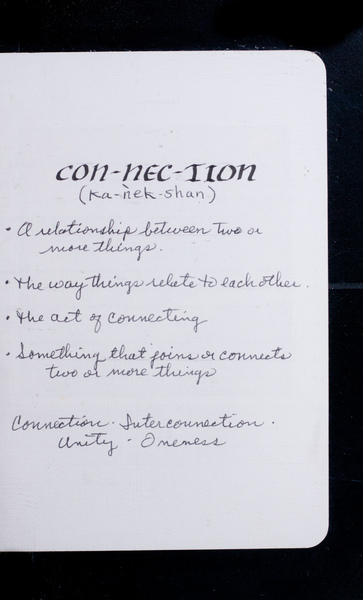 CON-NEC-TION
(Ka-nek-shan)
• A relationship between two or
more things.
• the way things relate to each other.
• the act of connecting
• Something that joins or connects
two or more things
Connection · Interconnection ·
Unity · Oneness